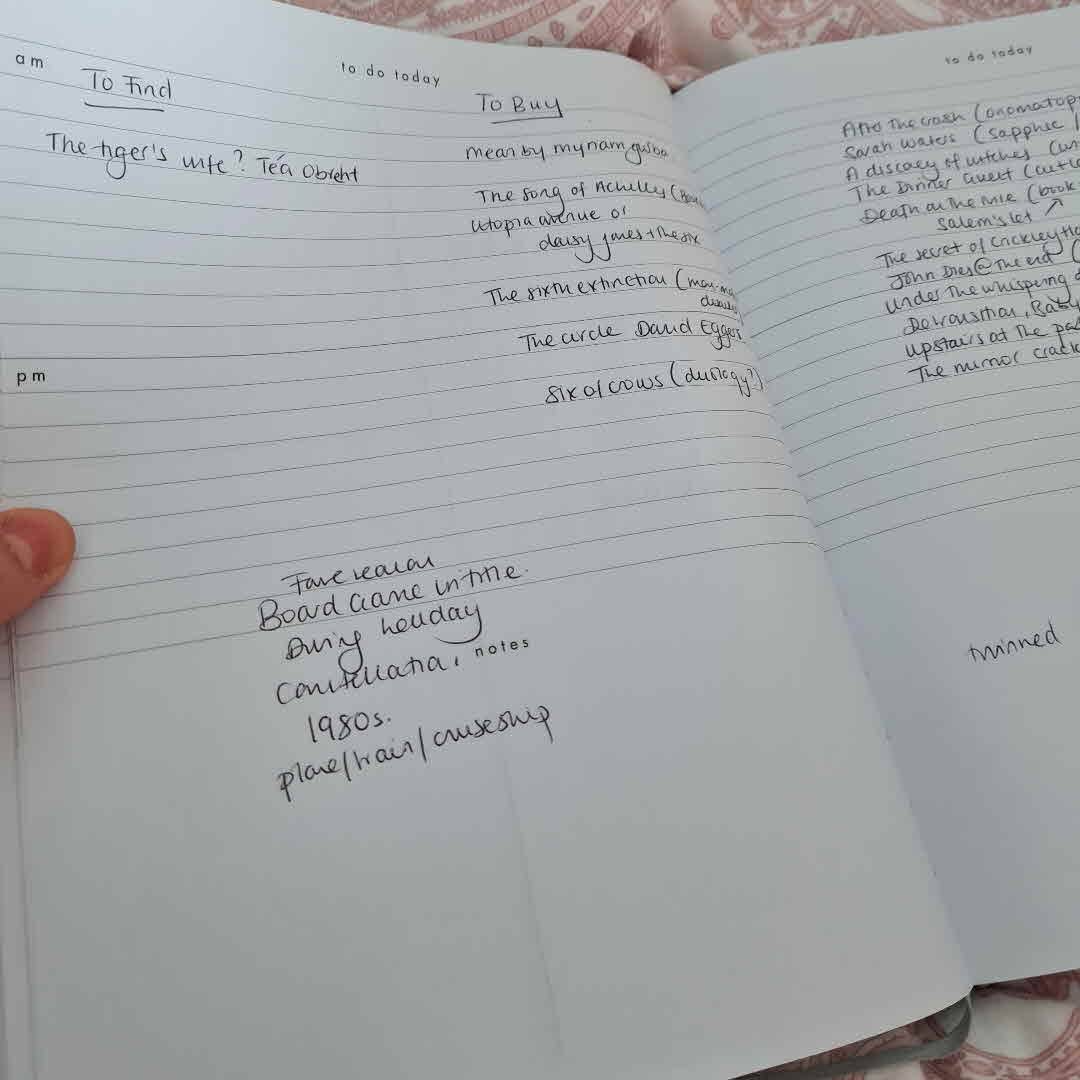 am
to do today
To Find
To Buy
The tiger's wife? Téa Obreht
mean by myriam gurba
The song of Achilles
utopia avenue or
daisy jones + the six
The sixth extinction (man-
The circle David Eggers
pm
six of crows (duology?)
Board Game in title.
During holiday
1980s.
notes
plane/train/cruiseship
to do today
After the crash (onomatop
Sarah waters (sapphic
A discacy of witches
The Dinner Guest
Death on the nile (book
salem's lot ↗
The secret of Crickley
John Dies @ The end (
Under The whispering
upstairs at the
The mirror crack
twinned